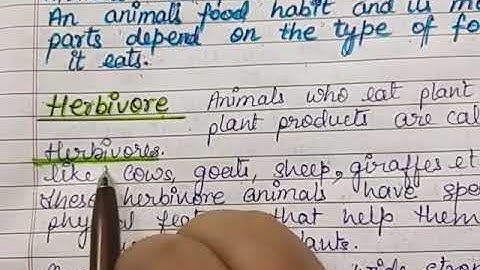 An animals food habit and its
parts depend on the type of
it eats.
Herbivore Animals who eat plant
plant products are
Herbivores.
like cows, goats, sheep, giraffes
these herbivore animals have
that help them